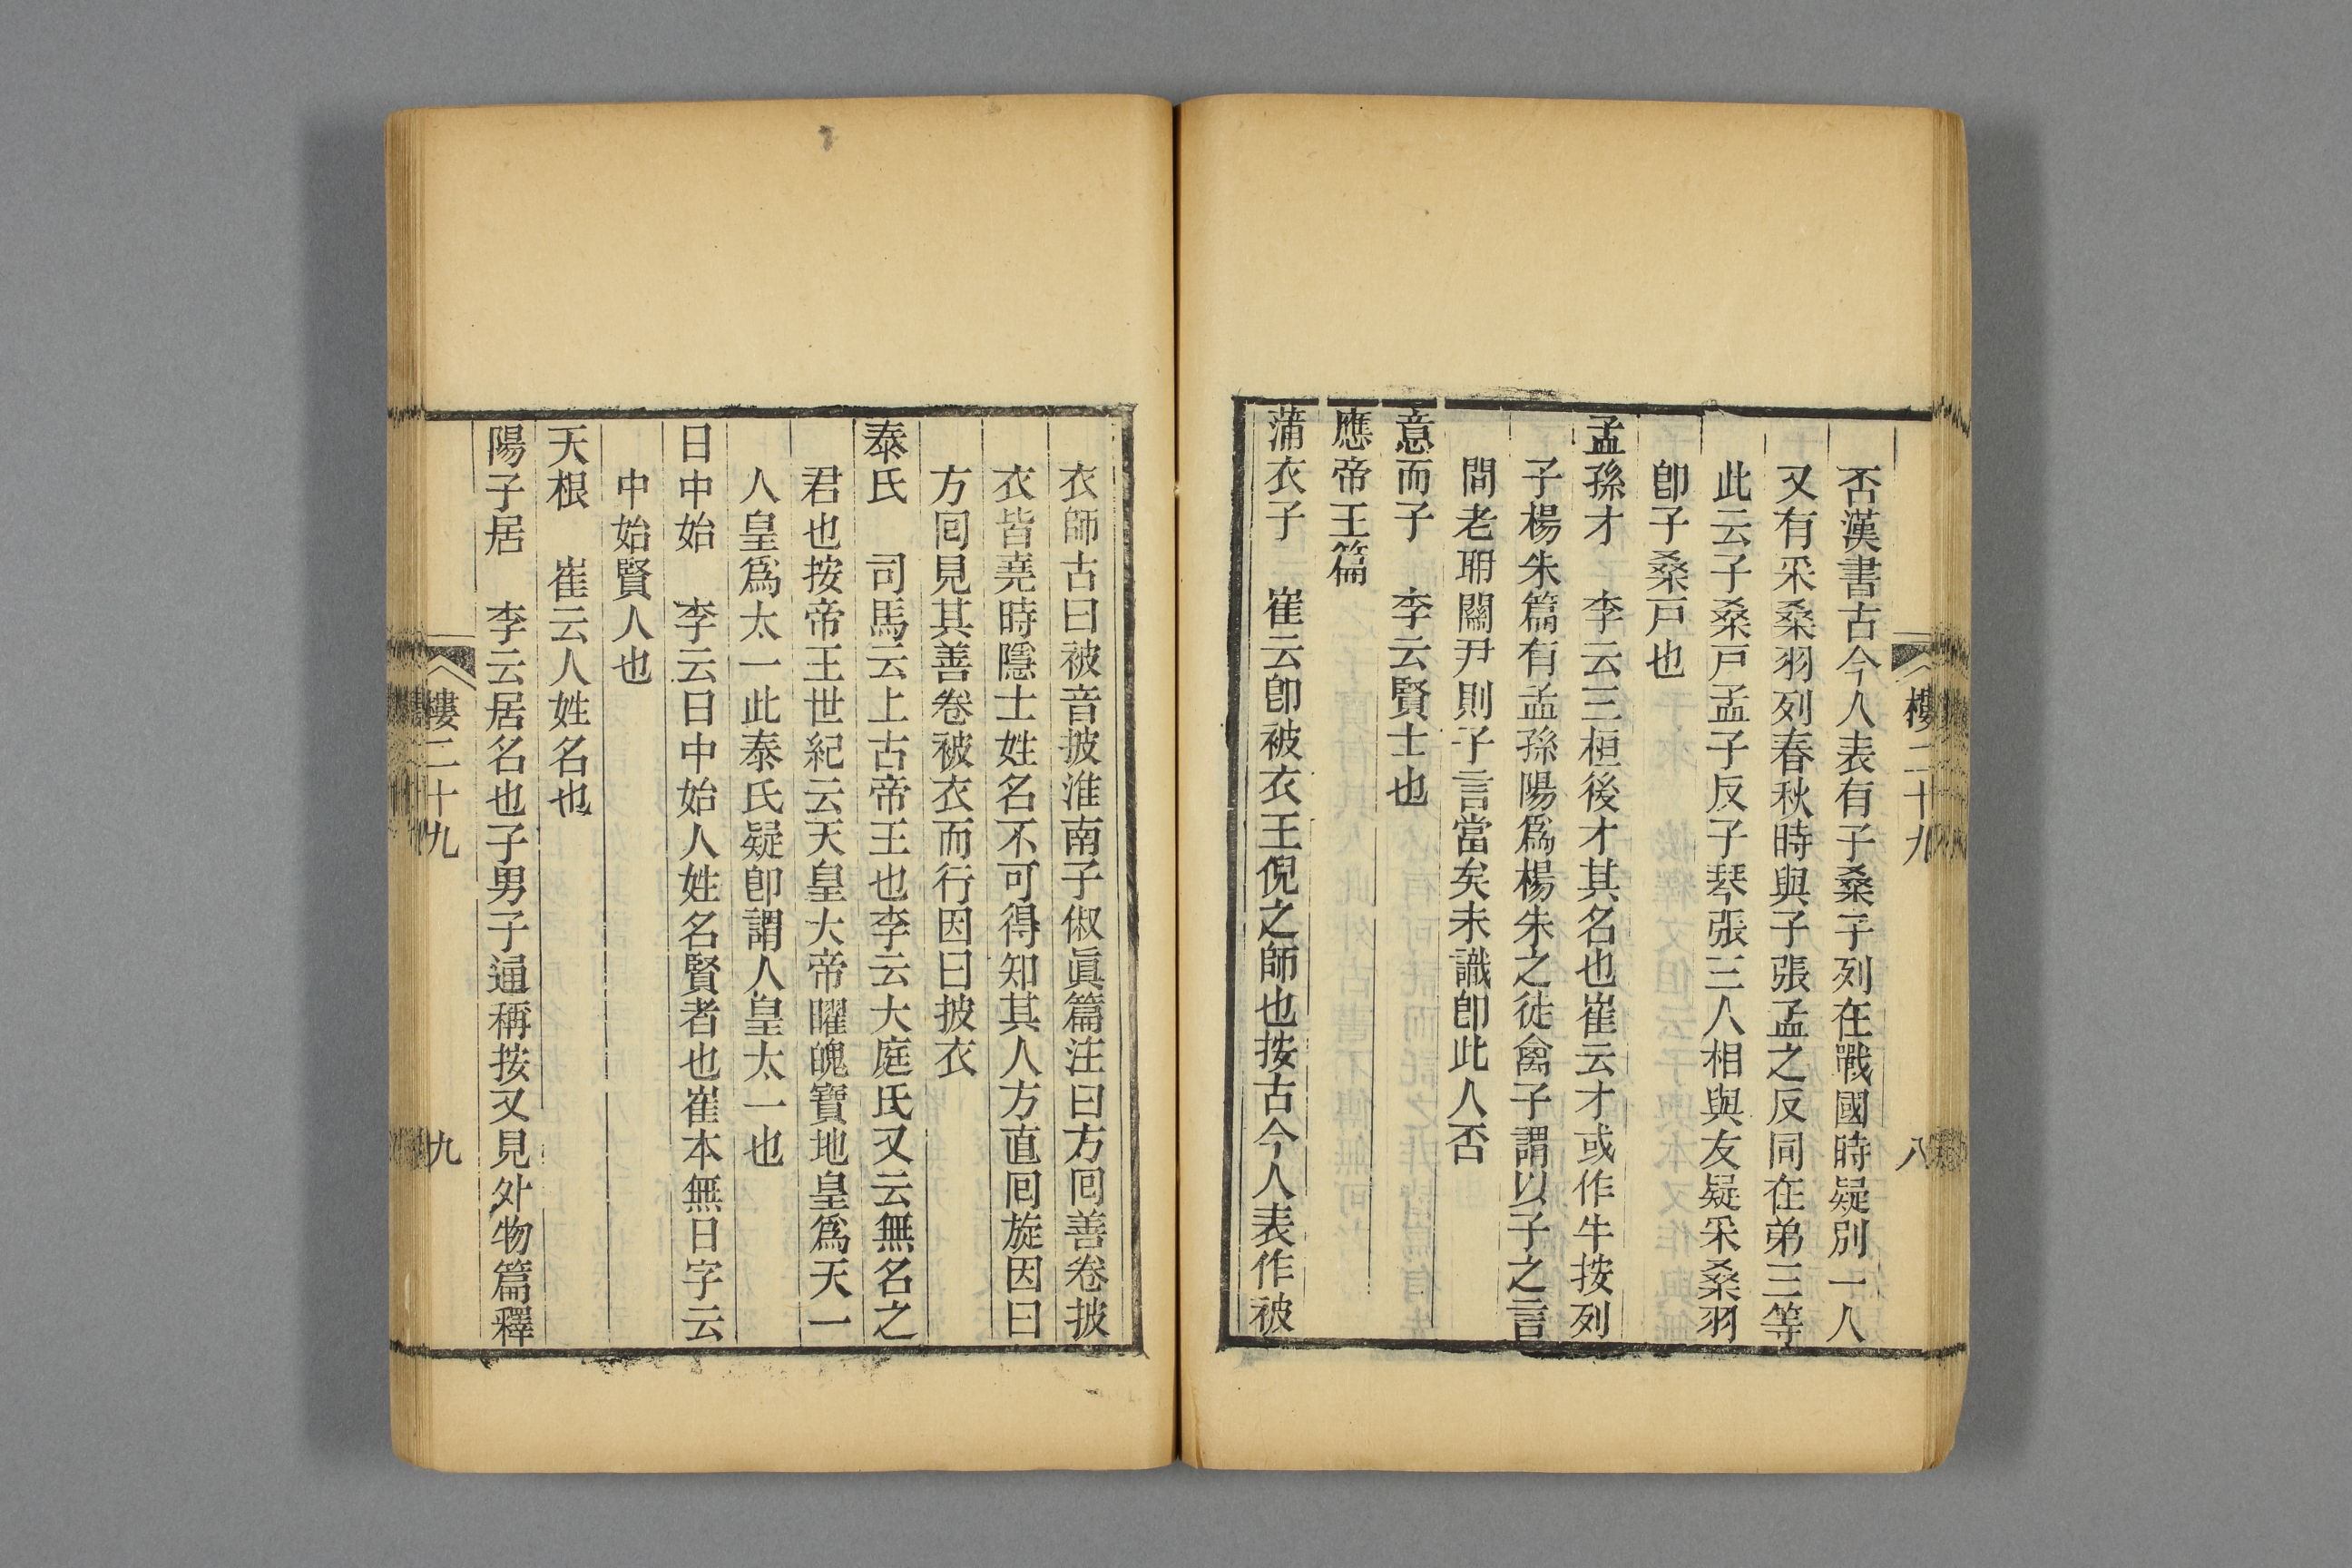 樓二十九
八
否漢書古今人表有子桑子列在戰國時疑別一人
又有采桑羽列春秋時與子張孟之反同在弟三等
此云子桑戸孟子反子琴張三人相與友疑采桑羽
卽子桑戸也
孟孫才 李云三桓後才其名也崔云才或作牛按列
子楊朱篇有孟孫陽爲楊朱之徒禽子謂以子之言
問老聃關尹則子言當矣未識卽此人否
意而子 李云賢士也
應帝王篇
蒲衣子 崔云卽被衣王倪之師也按古今人表作被
衣師古曰被音披淮南子俶眞篇注曰方回善卷披
衣皆堯時隱士姓名不可得知其人方直回旋因曰
方回見其善卷被衣而行因曰披衣
泰氏 司馬云上古帝王也李云大庭氏又云無名之
君也按帝王世紀云天皇大帝曜魄寶地皇爲天一
人皇爲太一此泰氏疑卽謂人皇太一也
日中始 李云日中始人姓名賢者也崔本無日字云
中始賢人也
天根 崔云人姓名也
陽子居 李云居名也子男子通稱按又見外物篇釋
樓二十九
九